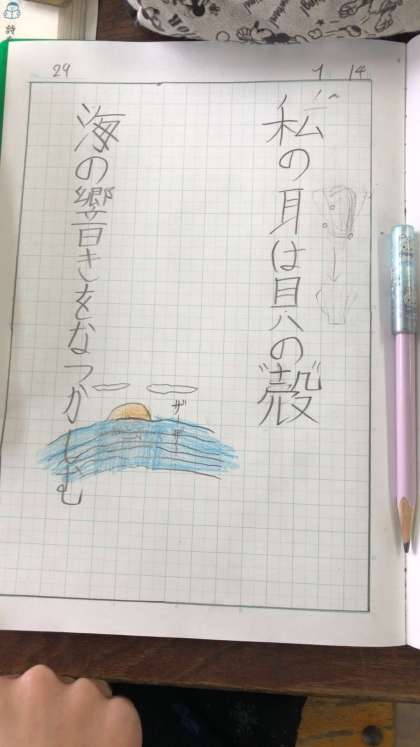 29
1 14
私の耳は貝の殻
海の響きをなつかしむ
ザーザー
詩